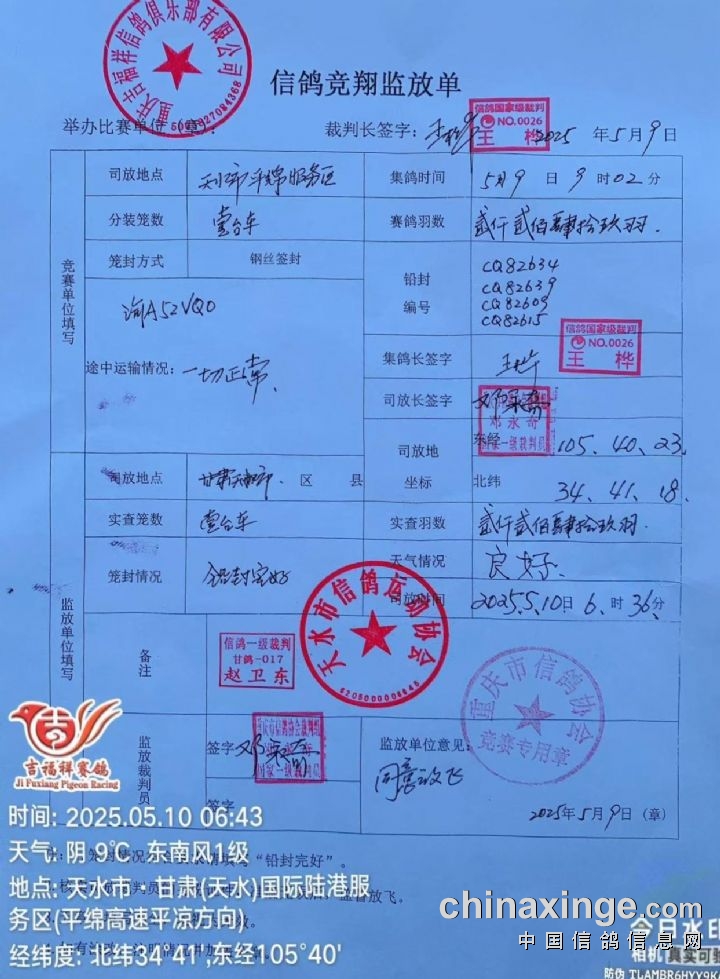 重庆吉福祥信鸽俱乐部有限公司
信鸽竞翔监放单
信鸽国家级裁判
NO.0026
王 桦
举办比赛单位(章):
裁判长签字: 2025 年5月9日
竞赛单位填写
司放地点 天水市平绵服务区 集鸽时间 5月9日9时02分
分装笼数 壹台车 赛鸽羽数 贰仟贰佰肆拾玖羽.
笼封方式 钢丝签封 铅封编号 CQ82634
CQ82639
CQ82609
CQ82615
渝A52VQ0
途中运输情况: 一切正常.
集鸽长签字 王桦
信鸽国家级裁判
NO.0026
王 桦
司放长签字 邓永奇
邓永奇
国家一级裁判员
司放地坐标 东经 105、40、23
北纬 34、41、18
监放单位填写
司放地点 甘肃天水市 区 县
实查笼数 壹台车 实查羽数 贰仟贰佰肆拾玖羽.
笼封情况 铅封完好 天气情况 良好.
司放时间 2025.5.10日6时36分
天水市信鸽运动协会
备注
信鸽一级裁判
甘鸽-017
赵卫东
重庆市信鸽协会
竞赛专用章
监放裁判员
签字 邓永奇
国家一级裁判员
签字
监放单位意见:
同意放飞
2025年5月9日(章)
吉福祥赛鸽
Ji Fuxiang Pigeon Racing
时间: 2025.05.10 06:43
天气: 阴 9℃ 东南风1级
地点: 天水市·甘肃(天水)国际陆港服
务区(平绵高速平凉方向)
经纬度: 北纬34°41',东经105°40'
"铅封完好"。
chinaxinge.com
中国信鸽信息网
今日水印
相机 真实可
防伪